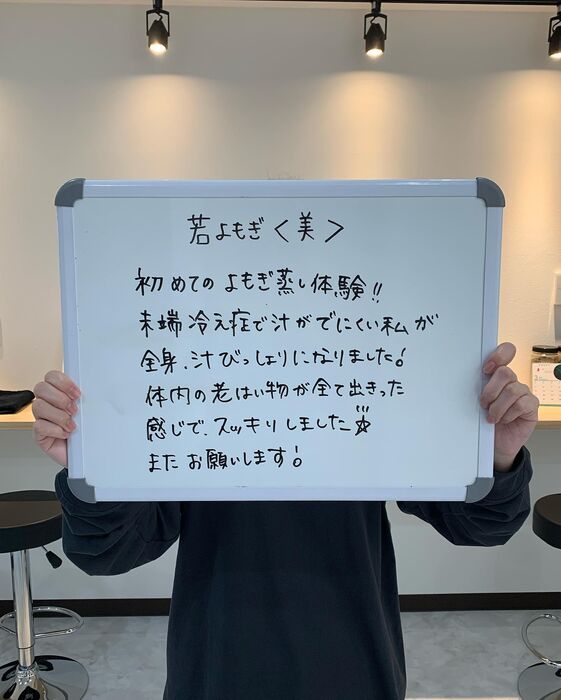 若よもぎ〈美〉
初めてのよもぎ蒸し体験!!
末端冷え症で汁がでにくい私が
全身、汁びっしょりになりました!
体内の老はい物が全て出きった
感じで、スッキリしました☆
またお願いします!